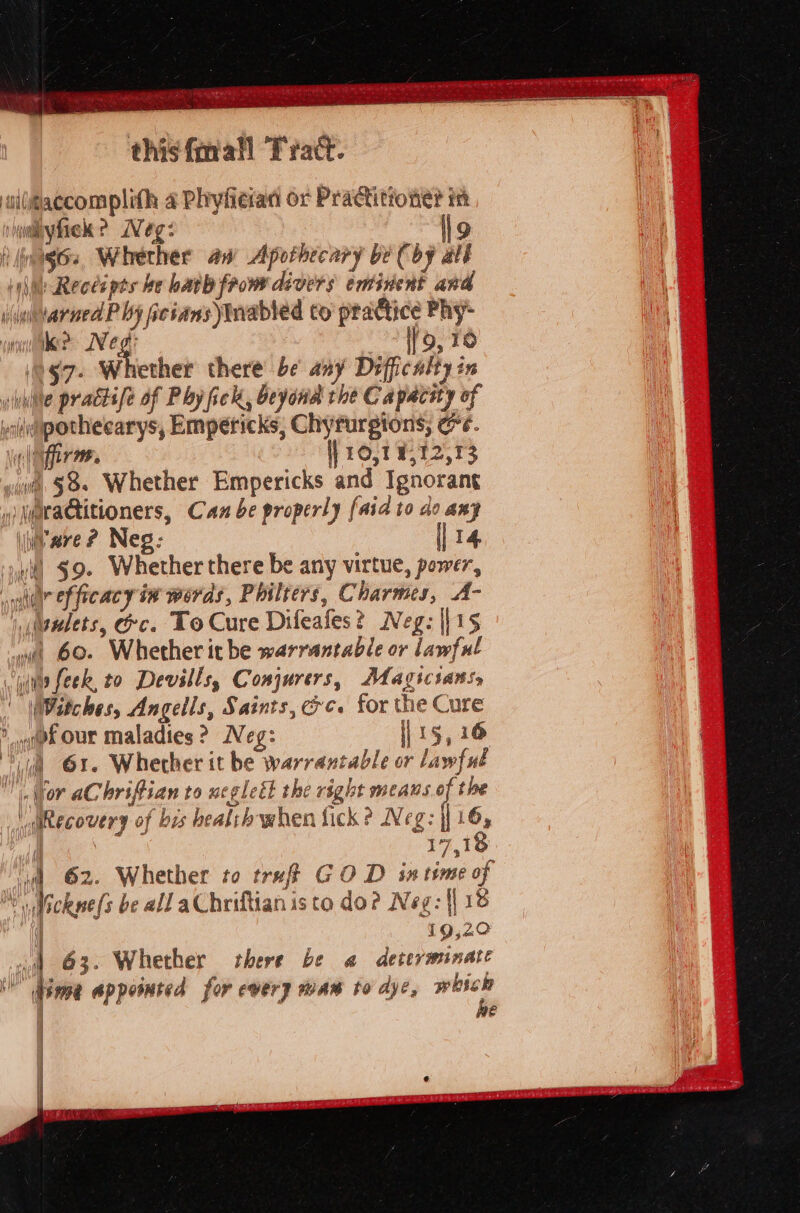 this ſmall Tract.
accompliſh a Phyſician or Practitioner in
yſick? Neg: ||9
56. Whether an Apothecary be (by all
Receipts he hath from divers eminent and
arned Phyſicians) inabled to practice Phy-
k? Neg: ||9, 10
57. Whether there be any Difficulty in
e practiſe of Phyſick, beyond the Capacity of
pothecarys, Empericks, Chyrurgions, &c.
ffirm. || 10,11,12,13
58. Whether Empericks and Ignorant
ractitioners, Can be properly ſaid to do any
are? Neg: || 14
59. Whether there be any virtue, power,
r efficacy in words, Philters, Charmes, A-
ulets, &c. To Cure Diſeaſes? Neg: ||15
60. Whether it be warrantable or lawful
ſeek to Devills, Conjurers, Magicians,
Witches, Angells, Saints, &c. for the Cure
Of our maladies? Neg: || 15, 16
61. Whether it be warrantable or lawful
or a Chriſtian to neglect the right means of the
Recovery of his health when ſick? Neg: || 16,
17,18
62. Whether to truſt GOD in time of
ickneſs be all a Chriſtian is to do? Neg: || 18
19,20
63. Whether there be a determinate
time appointed for every man to dye, which
he